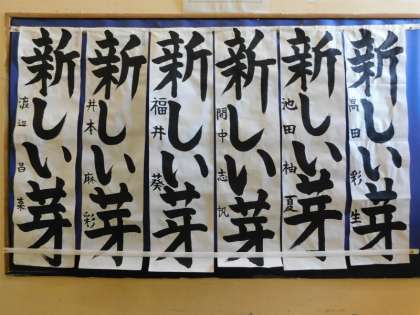 新しい芽
高田彩生
新しい芽
池田柚夏
新しい芽
間中志帆
新しい芽
福井葵
新しい芽
井本麻彩
新しい芽
渡辺昌